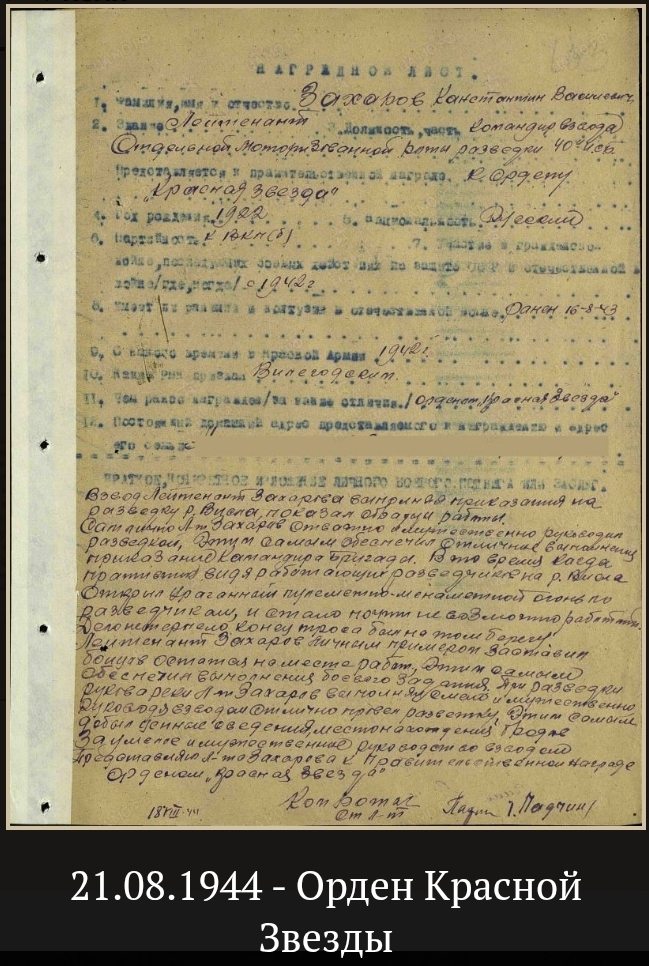 НАГРАДНОЙ ЛИСТ.
1. Фамилия, имя и отчество Захаров Констан​тин Васильевич
2. Звание Лейтенант 3. Должность, часть Командир взвода
Отдельной Моторизованной роты разведки 40
Представляется к правительственной награде К Ордену
"Красная Звезда"
4. Год рождения 1922 5. Национальность Русский
6. Партийность К ВКП(б) 7. Участие в гражданской
войне, последующих боевых действиях по защите СССР и отечественной
войне/где, когда/ с 1942 г
8. Имеет ли ранения и контузии в отечественной войне, Ранен 16-8-43
9. С какого времени в Красной Армии 1942 г
10. Каким РВК призван Вилегодским.
11. Чем ранее награжден/за какие отличия./ Орденом "Красная Звезда"
12. Постоянный домашний адрес представляемого к награждению и адрес
его семьи
КРАТКОЕ, КОНКРЕТНОЕ ИЗЛОЖЕНИЕ ЛИЧНОГО БОЕВОГО ПОДВИГА ИЛИ ЗАСЛУГ.
Взвод Лейтенант Захарова выполняя приказания на
разведку р. Висла, показал образцы работы.
Сам лично Л-т Захаров отважно и мужественно руководил
разведкой, Этим самым обеспечил отличное выполнения
приказание командира бригады. В то время когда
противник видя работающих разведчиков на р. Висла
Открыл ураганный пулеметно-минометный огонь по
разведчикам, и стало почти невозможно работать.
Дело терпело, конец троса был на том берегу
Лейтенант Захаров личным примером заставил
бойцов остатся на месте работ, Этим самым
обеспечил выполнения боевого задания. При разведки
рукова реки Л-т Захаров выполняя смело и мужественно
руководя взводом отлично провел разведку, Этим самым
добыл ценные сведения, местонахождения бродов
За умелое и мужественное руководство взводом
Представляю Л-та Захарова к Правительственной награде
Орденом "Красная Звезда"
18 VIII-44 Ком роты
Ст Л-т
21.08.1944 - Орден Красной
Звезды